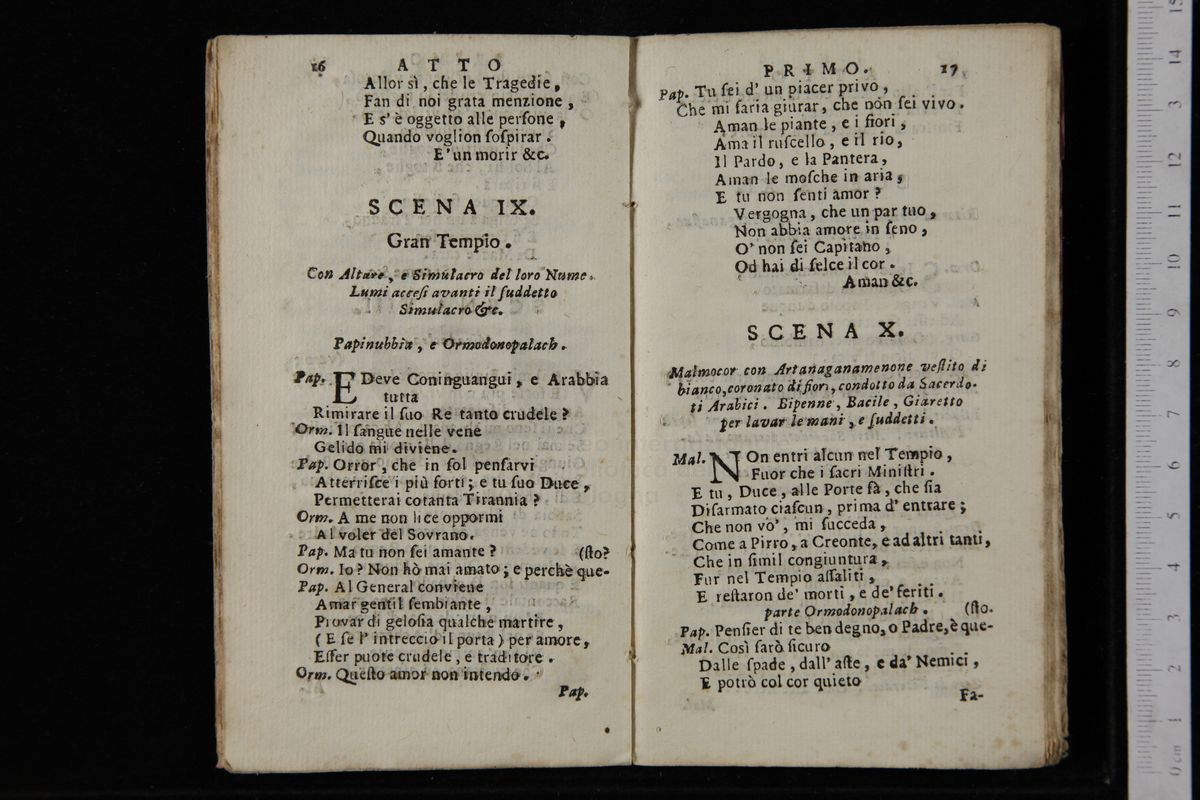 16 ATTO
Allor sì, che le Tragedie,
Fan di noi grata menzione,
E s' è oggetto alle perſone,
Quando voglion ſoſpirar.
E' un morir &c.
SCENA IX.
Gran Tempio.
Con Altare, e Simulacro del loro Nume.
Lumi acceſi avanti il ſuddetto
Simulacro &c.
Papinubbia, e Ormodonopalach.
Pap. E Deve Coninguangui, e Arabbia
tutta
Rimirare il ſuo Re tanto crudele?
Orm. Il ſangue nelle vene
Gelido mi diviene.
Pap. Orror, che in ſol penſarvi
Atterriſce i più forti; e tu ſuo Duce,
Permetterai cotanta Tirannia?
Orm. A me non lice oppormi
Al voler del Sovrano.
Pap. Ma tu non ſei amante? (ſto?
Orm. Io? Non hò mai amato; e perchè que-
Pap. Al General conviene
Amar gentil ſembiante,
Provar di geloſia qualche martire,
(E ſe l' intreccio il porta) per amore,
Eſſer puote crudele, e traditore.
Orm. Queſto amor non intendo.
Pap.
PRIMO. 17
Pap. Tu ſei d' un piacer privo,
Che mi faria giurar, che nòn ſei vivo.
Aman le piante, e i fiori,
Ama il ruſcello, e il rio,
Il Pardo, e la Pantera,
Aman le moſche in aria,
E tu non ſenti amor?
Vergogna, che un par tuo,
Non abbia amore in ſeno,
O' non ſei Capitano,
Od hai di ſelce il cor.
Aman &c.
SCENA X.
Malmocor con Artanaganamenone veſtito di
bianco, coronato di fiori, condotto da Sacerdo-
ti Arabici. Bipenne, Bacile, Giaretto
per lavar le mani, e ſuddetti.
Mal. NOn entri alcun nel Tempio,
Fuor che i ſacri Miniſtri.
E tu, Duce, alle Porte fà, che ſia
Diſarmato ciaſcun, prima d' entrare;
Che non vò', mi ſucceda,
Come a Pirro, a Creonte, e ad altri tanti,
Che in ſimil congiuntura,
Fur nel Tempio aſſaliti,
E reſtaron de' morti, e de' feriti.
parte Ormodonopalach. (ſto.
Pap. Penſier di te ben degno, o Padre, è que-
Mal. Così farò ſicuro
Dalle ſpade, dall' aſte, e da' Nemici,
E potrò col cor quieto
Fa-